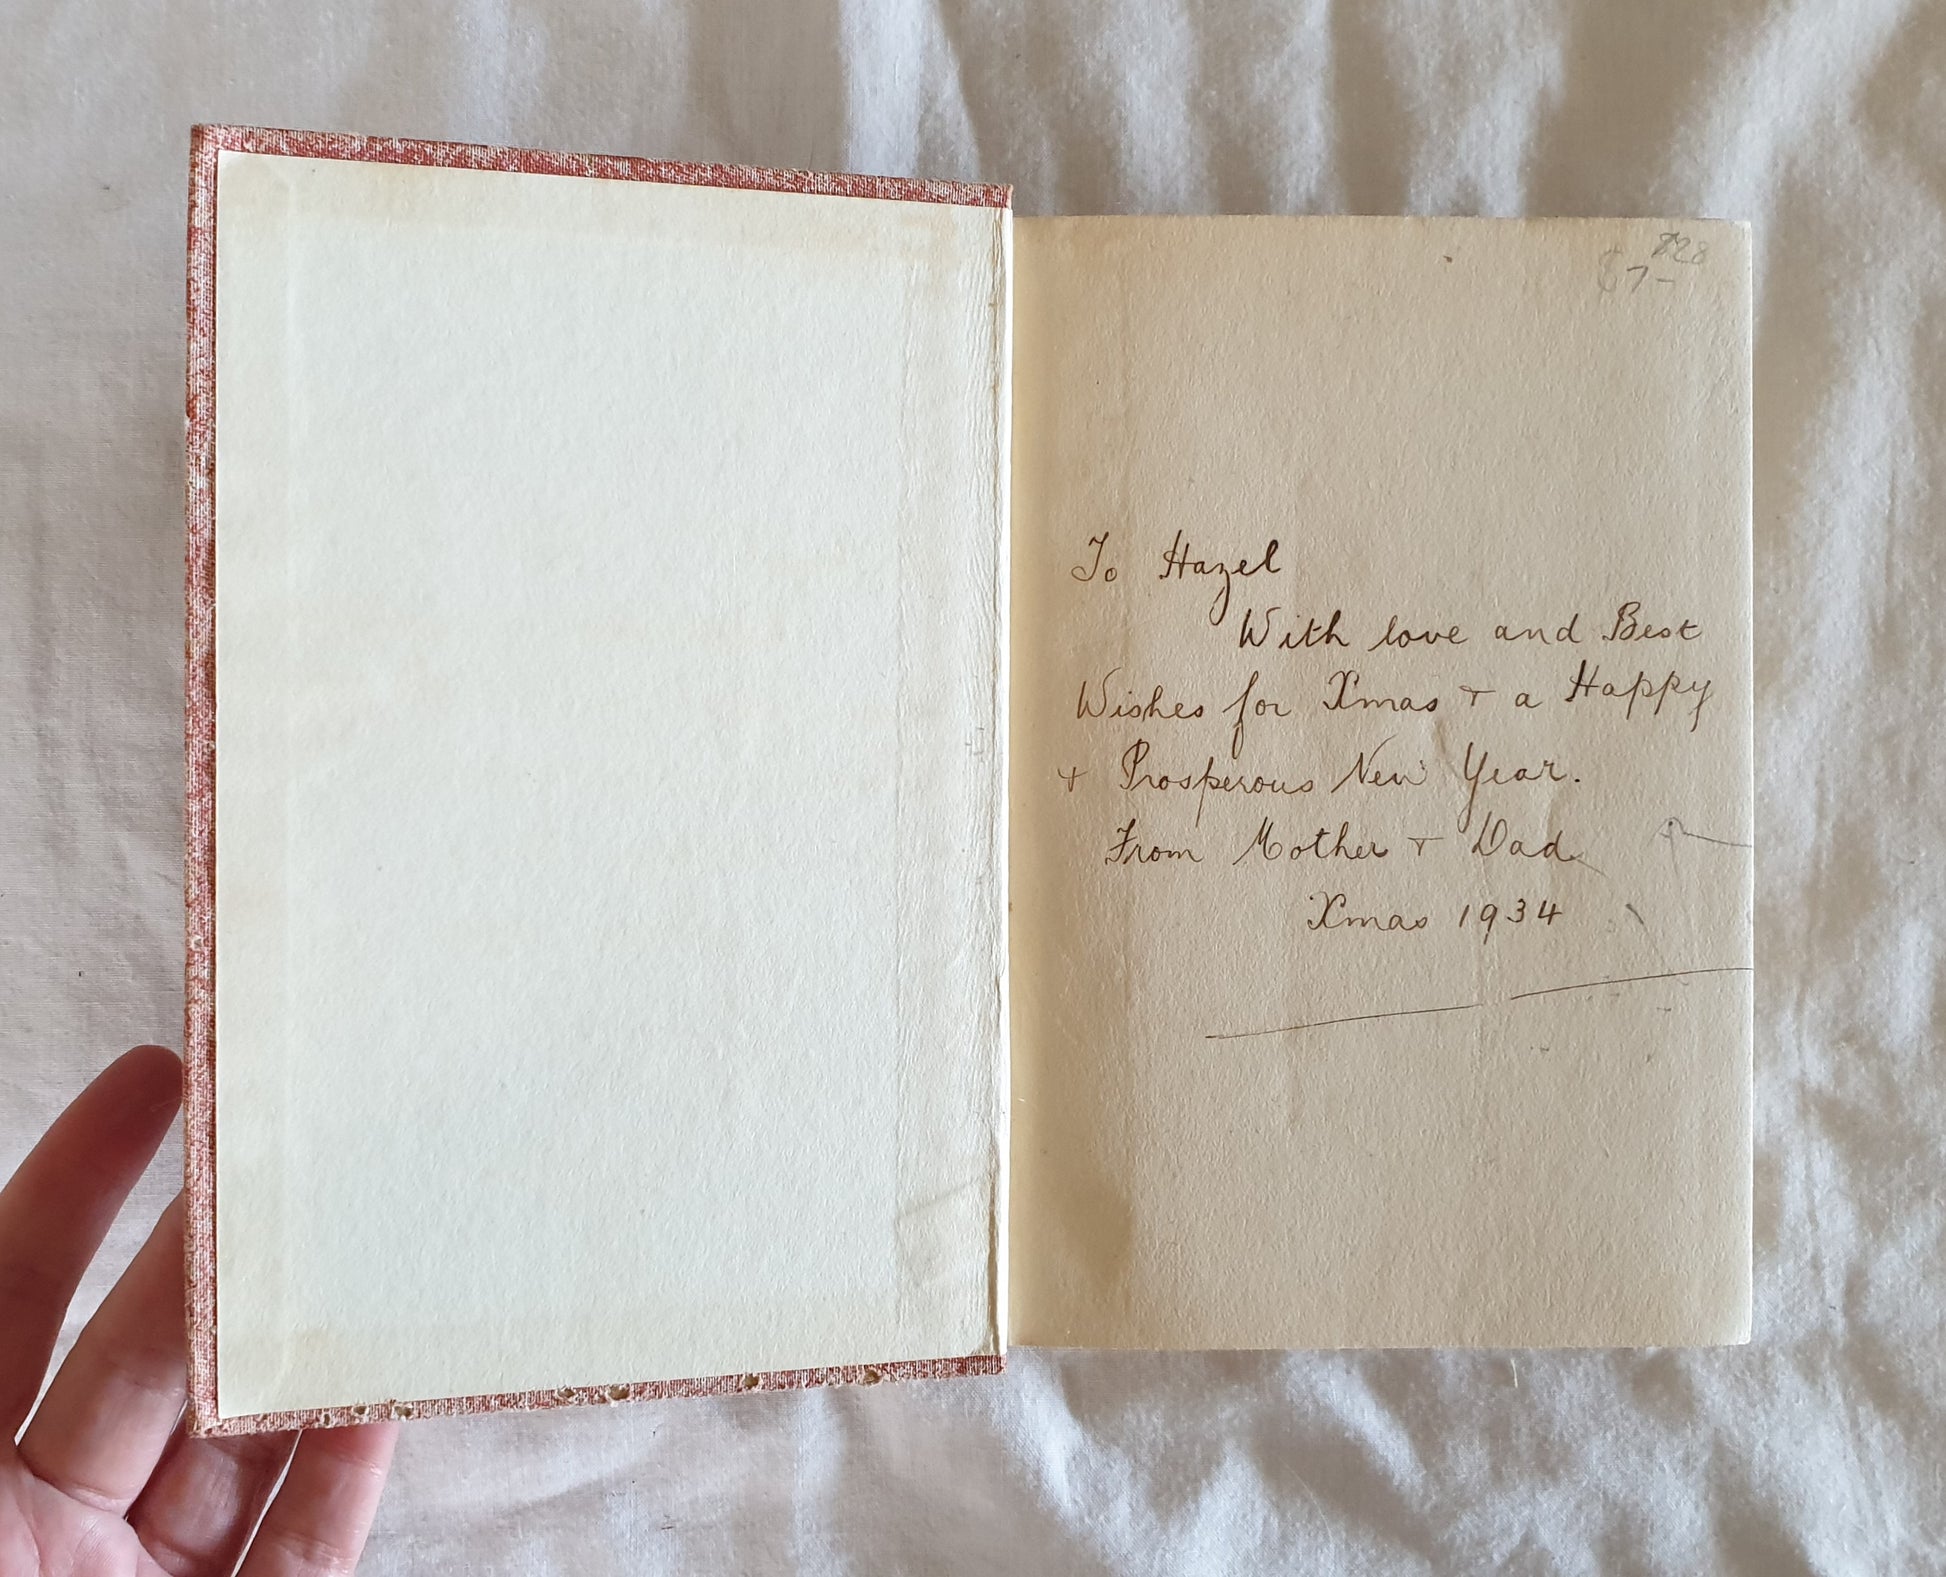 To Hazel
With love and Best
Wishes for Xmas + a Happy
+ Prosperous New Year.
From Mother + Dad
Xmas 1934